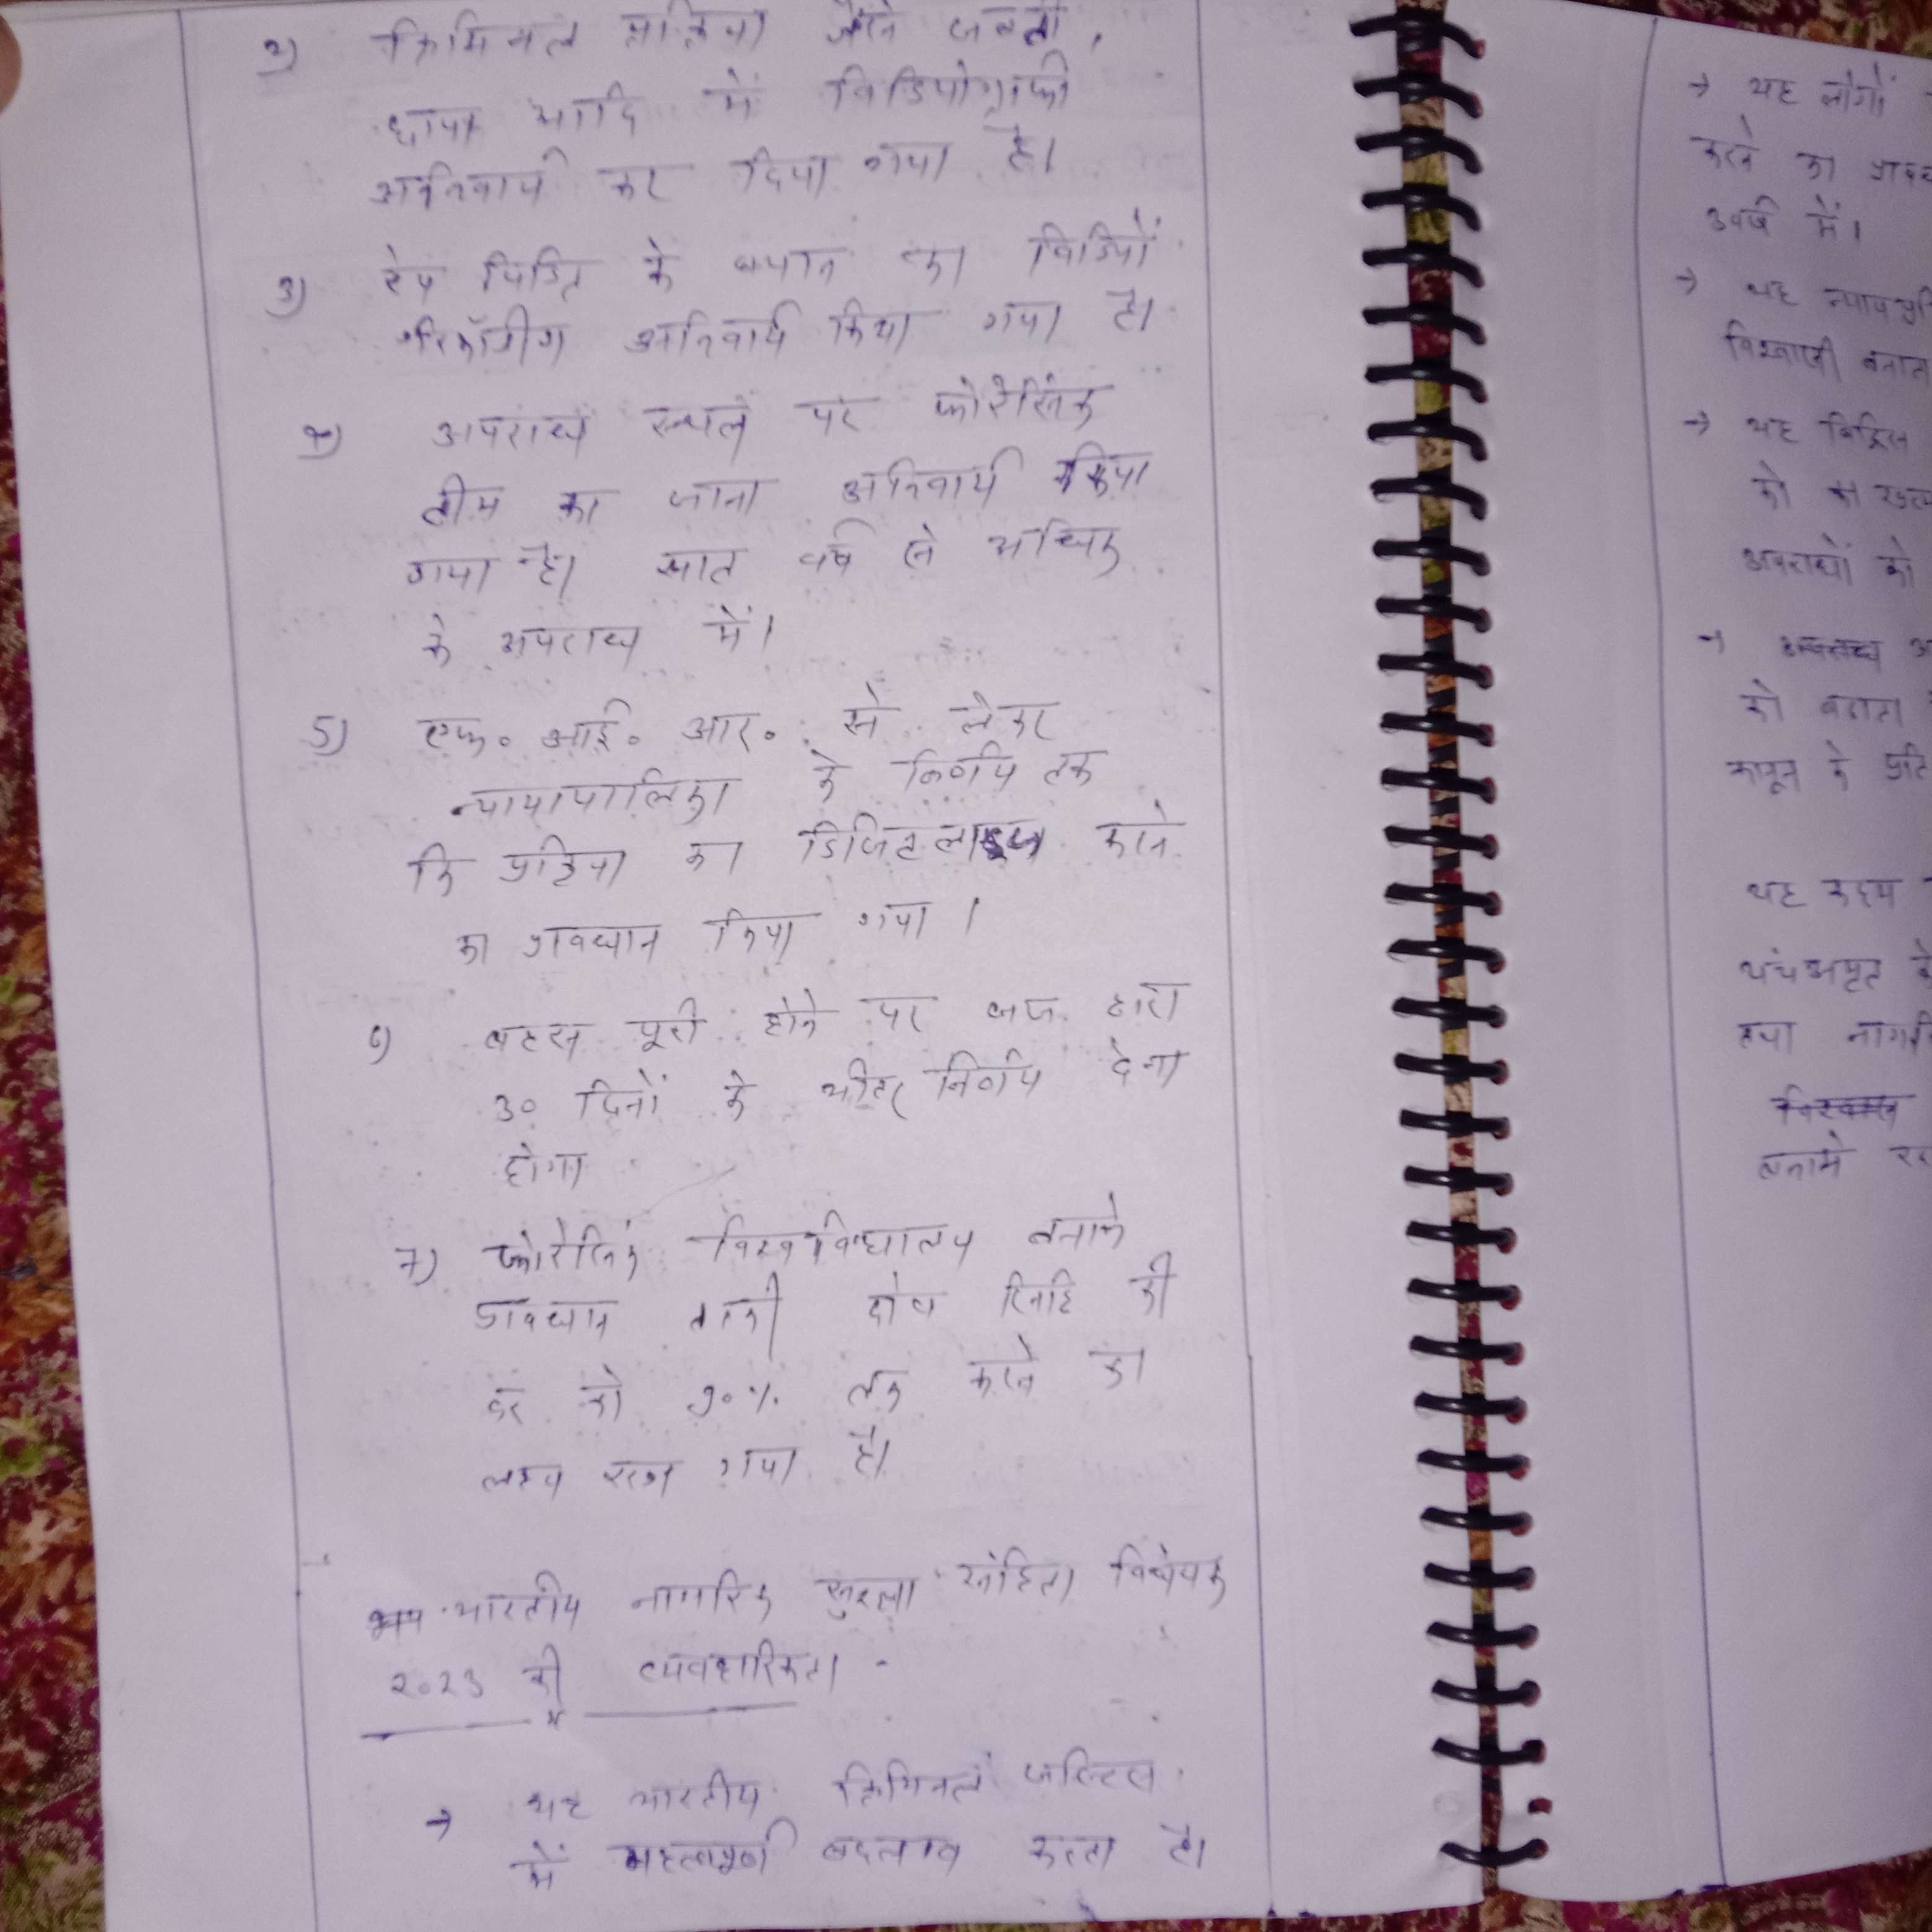 2) क्रिमिनल प्रक्रिया जैसे जब्ती,
छापा आदि में विडियोग्राफी
अनिवार्य कर दिया गया है।
3) रेप पिडित के बयान का विडियों
रिकॉर्डींग अनिवार्य किया गया है।
4) अपराध स्थल पर फोरेंसिक
टीम का जाना अनिवार्य किया
गया है। सात वर्ष से अधिक
के अपराध में।
5) एफ. आई. आर. से लेकर
न्यायापालिका के निर्णय तक
कि प्रक्रिया का डिजिटलाइज करने
का प्रावधान किया गया।
6) बहस पूरी होने पर जज द्वारा
30 दिनों के भीतर निर्णय देना
होगा
7) फोरेंसिक विश्वविद्यालय बनाके
प्रावधान ताकी दोष सिद्धि की
दर को 90% तक करने का
लक्ष्य रखा गया है।
भारतीय नागरिक सुरक्षा संहिता विधेयक
2023 की व्यवहारिकता -
→ यह भारतीय क्रिमिनल जस्टिस
में महत्वपूर्ण बदलाव करता है।
→ यह लोगों
करने का
3 वर्ष में।
→ यह
बनाता
→ यह
को
अपराधों को
→
को बढाता
कानून के प्रति
यह कदम
पंचअमृत के
तथा
बनाये